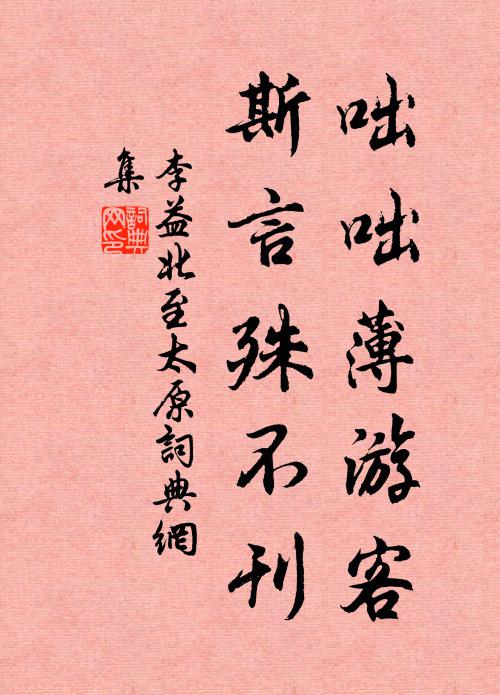 咄咄薄游客
斯言殊不刊
李益北至太原詞典網
集
詞典網印